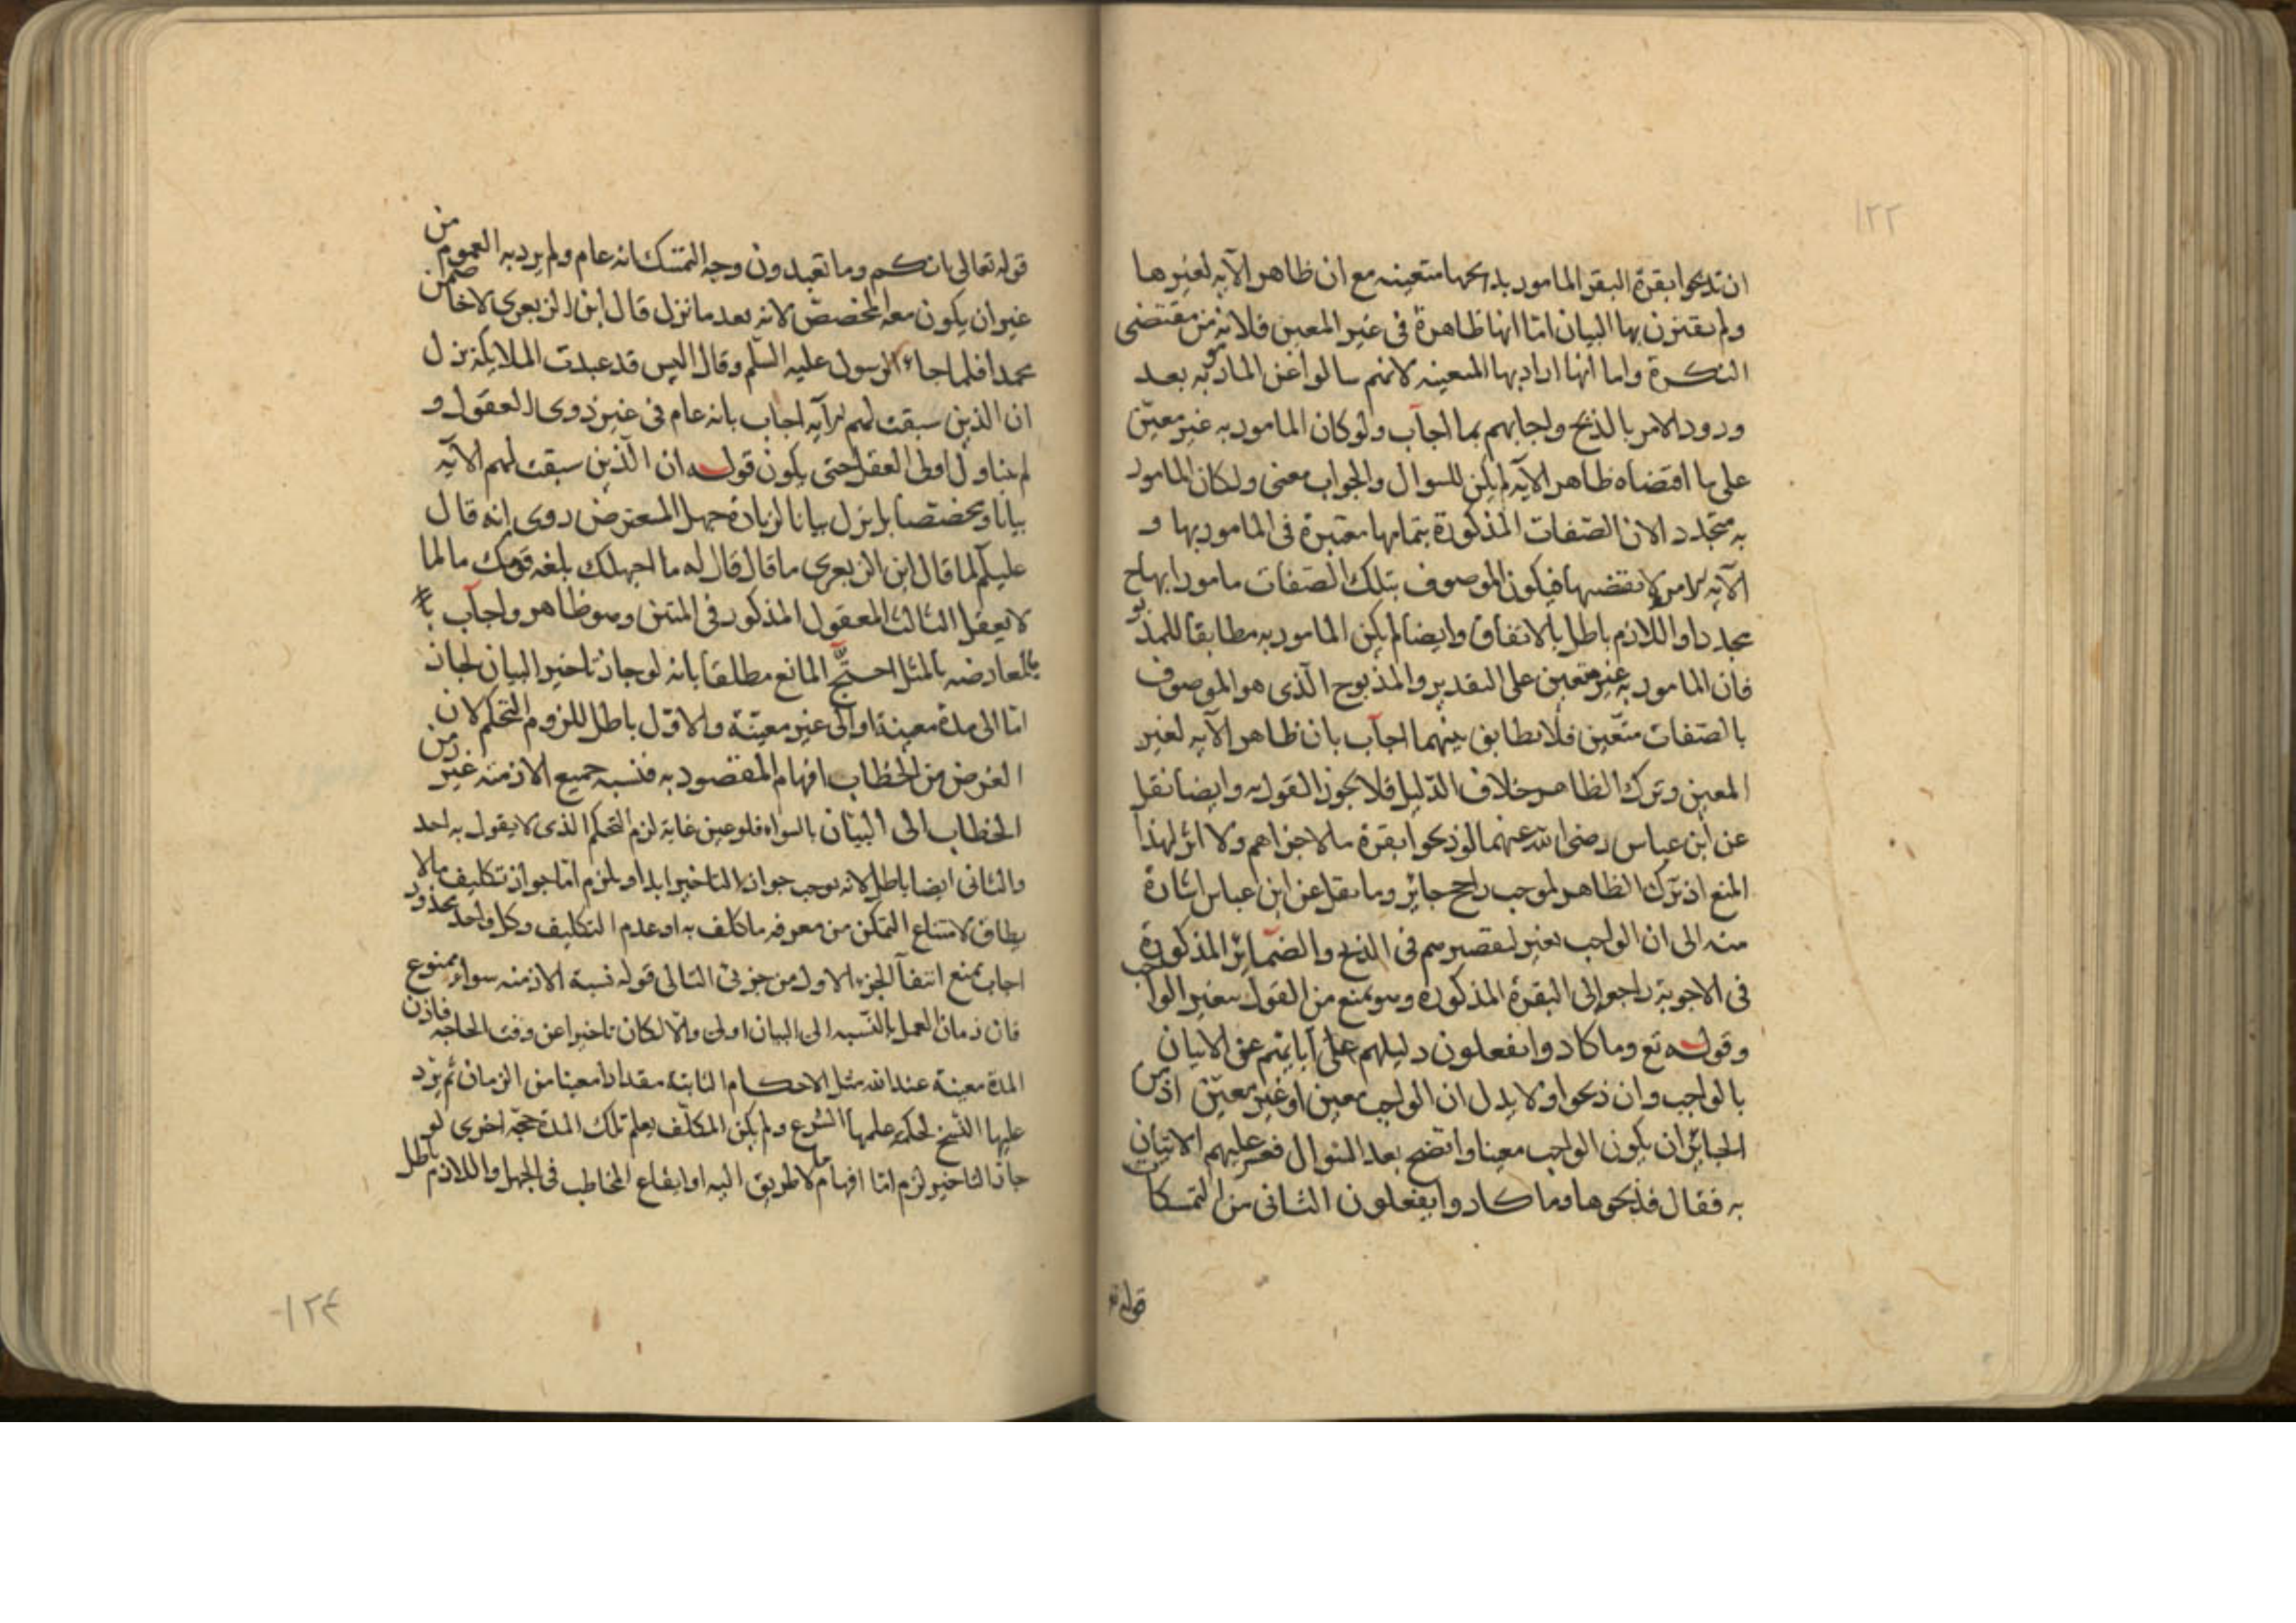 ١٢٣
ان تذبحوا بقرة البقر المامور بذبحها متعينه مع ان ظاهر الآيه لغيرها
ولم يقترن بها البيان امّا انها ظاهرة فى غير المعين فلانه من مقتضى
النكرة واما انها اراد بها المعينه لانهم سالوا عن المامور به بعد
ورود الامر بالذبح واجابهم بما اجاب ولو كان المامور به غير معيّن
على ما اقتضاه ظاهر الآيه لم يكن للسوال والجواب معنى ولكان المامور
به متجدد الان الصّفات المذكورة بتمامها معتبرة فى المامور بها و
الآيه لا يقتضيها فيكون الموصوف بتلك الصّفات مامورا بها ح
مجددا واللازم باطل بالاتفاق وايضا لم يكن المامور به مطابقا للمذبو
فان المامور به غير متعين على التقدير والمذبوح الّذى هو الموصوف
بالصّفات متّعين فلا تطابق بينهما اجآب بان ظاهر الآيه لغير
المعين وترك الظاهر خلاف الدّليل فلا يجوز القول به وايضا نقل
عن ابن عباس رضى الله عنهما لو ذبحوا بقرة ما لاجزاهم ولا اثر لهذا
المنع اذ ترك الظاهر لموجب راجح جايز وما نقل عن ابن عباس اشارة
منه الى ان الواجب بغير لتقصيرهم فى الذبح والضّمآئر المذكورة
فى الاجوبة راجعه الى البقرة المذكورة وهو يمنع من القول بغير الواجب
وقوله تع وما كادوا يفعلون دليلهم على ابايهم عن الاتيان
بالواجب وان ذبحوا ولا يدل ان الواجب معين او غير معيّن اذ من
الجائز ان يكون الواجب معينا واتضح بعد السّوال فعسر عليهم الاتيان
به فقال فذبحوها وما كادوا يفعلون الثانى من التمسكات
قوله تع
قوله تعالى انكم وما تعبدون وجه التمسّك انه عام ولم يرد به العموم من
غير ان يكون معه المخصص لانه بعد ما نزل قال ابن الزبعرى لاخاصمن
محمدا فلما جاء الرسول عليه السّلم وقال اليس قد عبدت الملايكة نزل
ان الذين سبقت لهم الآيه اجاب بانه عام فى غير ذوى العقول و
لم يتناول اولى العقل حتى يكون قوله ان الّذين سبقت لهم الآيه
بيانا وتخصّصا بل نزل بيانا لزيادة جهل المعترض روى انه قال
عليه لما قال ابن الزبعرى ما قال قال له ما اجهلك بلغة قومك ما لما
لا يعقل الثالث المعقول المذكور فى المتن وهو ظاهر واجآب
بالمعارضه بالمثل احتجّ المانع مطلقا بانه لو جاز تاخير البيان لجاز
امّا الى مدة معينة او الى غير معيّنة والاوّل باطل للزوم التّحكم لان
الغرض من الخطاب افهام المقصود به فنسبه جميع الازمنه غير زمن
الخطاب الى البيان بالسواء فلو عين غاية لزم التحكم الذى لا يقول به احد
والثانى ايضا باطل لانه يوجب جواز التاخير ابدا ويلزم امّا جواز تكليف ما لا
يطاق لامتناع التمكن من معرفه ما كلف به او عدم التكليف وكل واحد محذور
اجاب بمنع انتفآ الجزء الاول من جزئى التالى قوله نسبة الازمنه سواء ممنوع
فان زمان العمل بالنّسبه الى البيان اولى والّا لكان تاخيرا عن وقت الحاجه فاذن
المدة معينة عند الله مثل الاحكام الثابتة مقدارا معينا من الزمان ثم يرد
عليها النّسخ لحكمة علمها الشرع ولم يكن المكلّف يعلم تلك المدة حجّة اخرى لو
جاز التاخير لزم امّا افهام ما لا طريق اليه او ايقاع المخاطب فى الجهل واللازم باطل
١٢٤